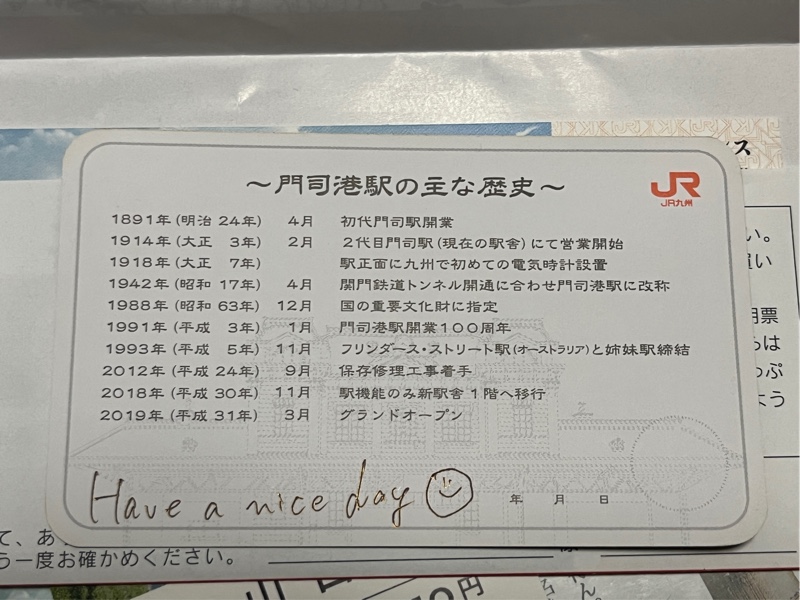 ～門司港駅の主な歴史～
JR
JR九州
1891年(明治 24年) 4月 初代門司駅開業
1914年(大正 3年) 2月 2代目門司駅(現在の駅舎)にて営業開始
1918年(大正 7年) 駅正面に九州で初めての電気時計設置
1942年(昭和 17年) 4月 関門鉄道トンネル開通に合わせ門司港駅に改称
1988年(昭和 63年) 12月 国の重要文化財に指定
1991年(平成 3年) 1月 門司港駅開業100周年
1993年(平成 5年) 11月 フリンダース・ストリート駅(オーストラリア)と姉妹駅締結
2012年(平成 24年) 9月 保存修理工事着手
2018年(平成 30年) 11月 駅機能のみ新駅舎1階へ移行
2019年(平成 31年) 3月 グランドオープン
Have a nice day
年 月 日
う一度お確かめください。